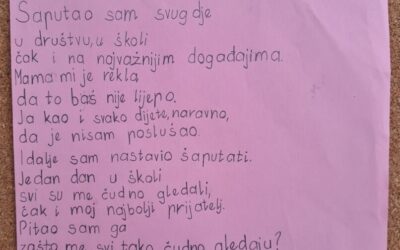 Šaputao sam svugdje
u društvu, u školi
čak i na najvažnijim događajima.
Mama mi je rekla
da to baš nije lijepo.
Ja kao i svako dijete, naravno,
da je nisam poslušao.
I dalje sam nastavio šaputati.
Jedan dan u školi
svi su me čudno gledali,
čak i moj najbolji prijatelj.
Pitao sam ga
zašto me svi tako čudno gledaju?